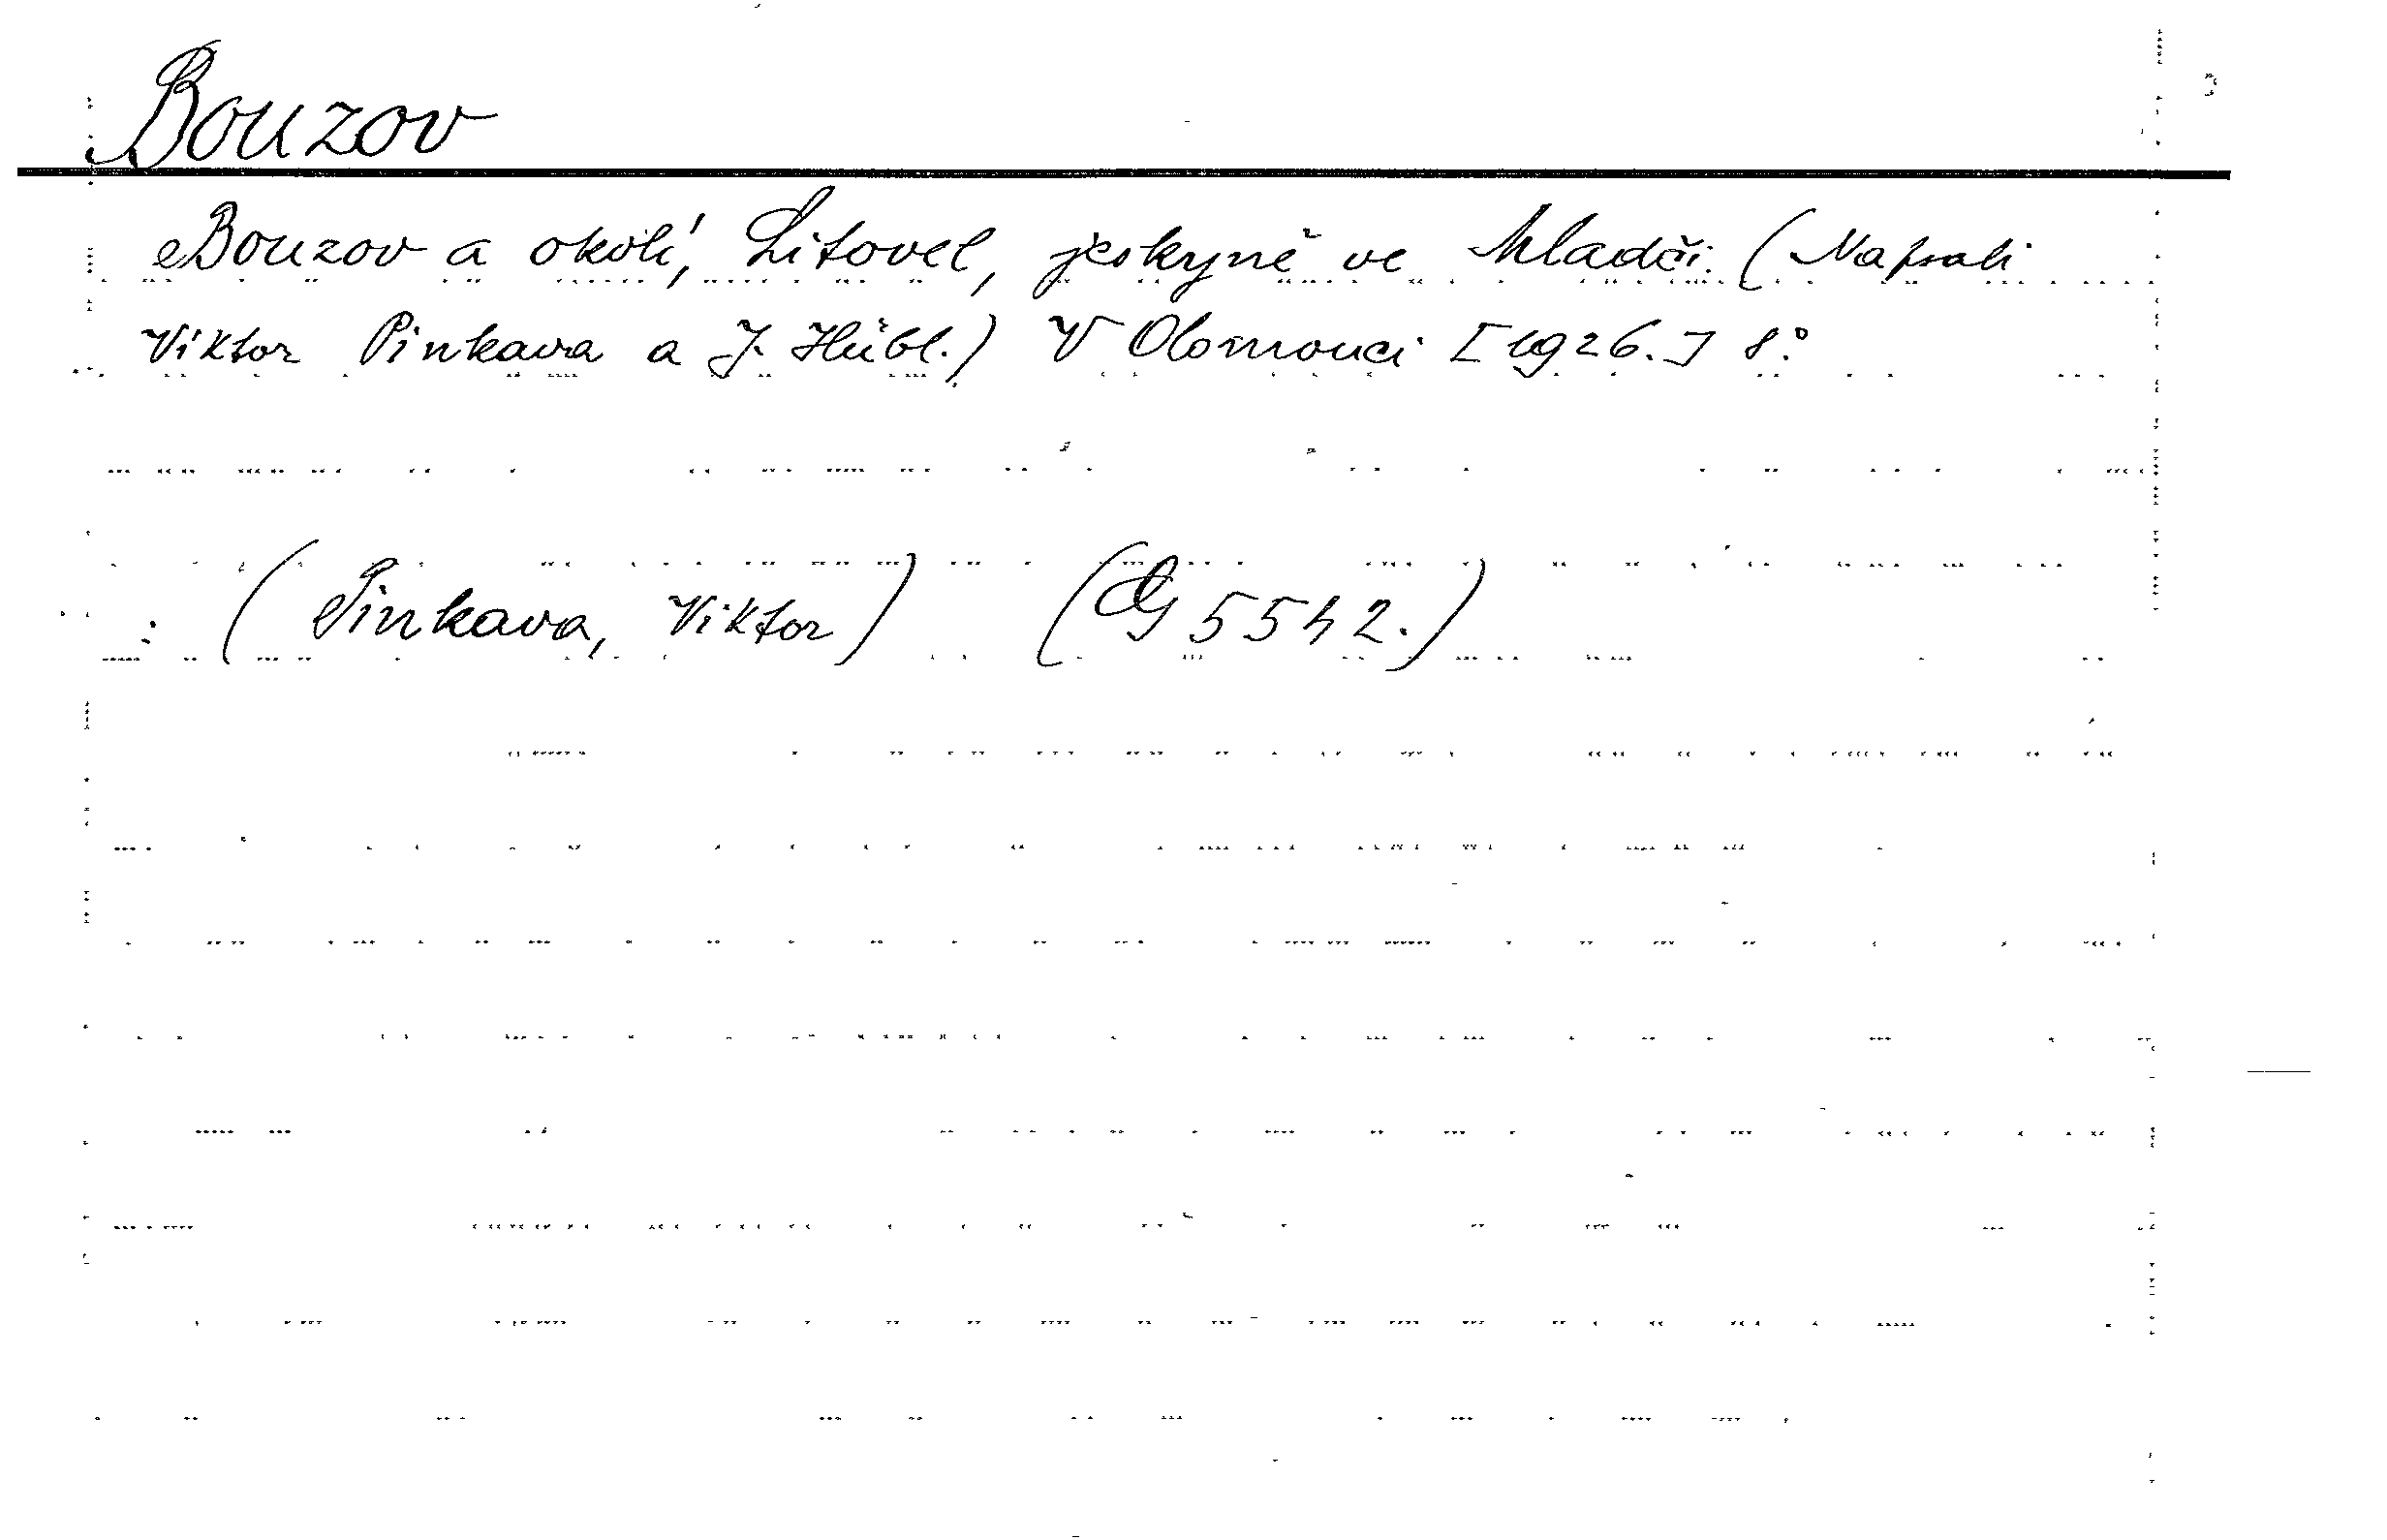 Bouzov
Bouzov a okolí, Litovel, jeskyně ve Mladči. (Napsali
Viktor Pinkava a J. Hübl.) V Olomouci [1926.] 8.°
(Pinkava, Viktor) (G 5542.)